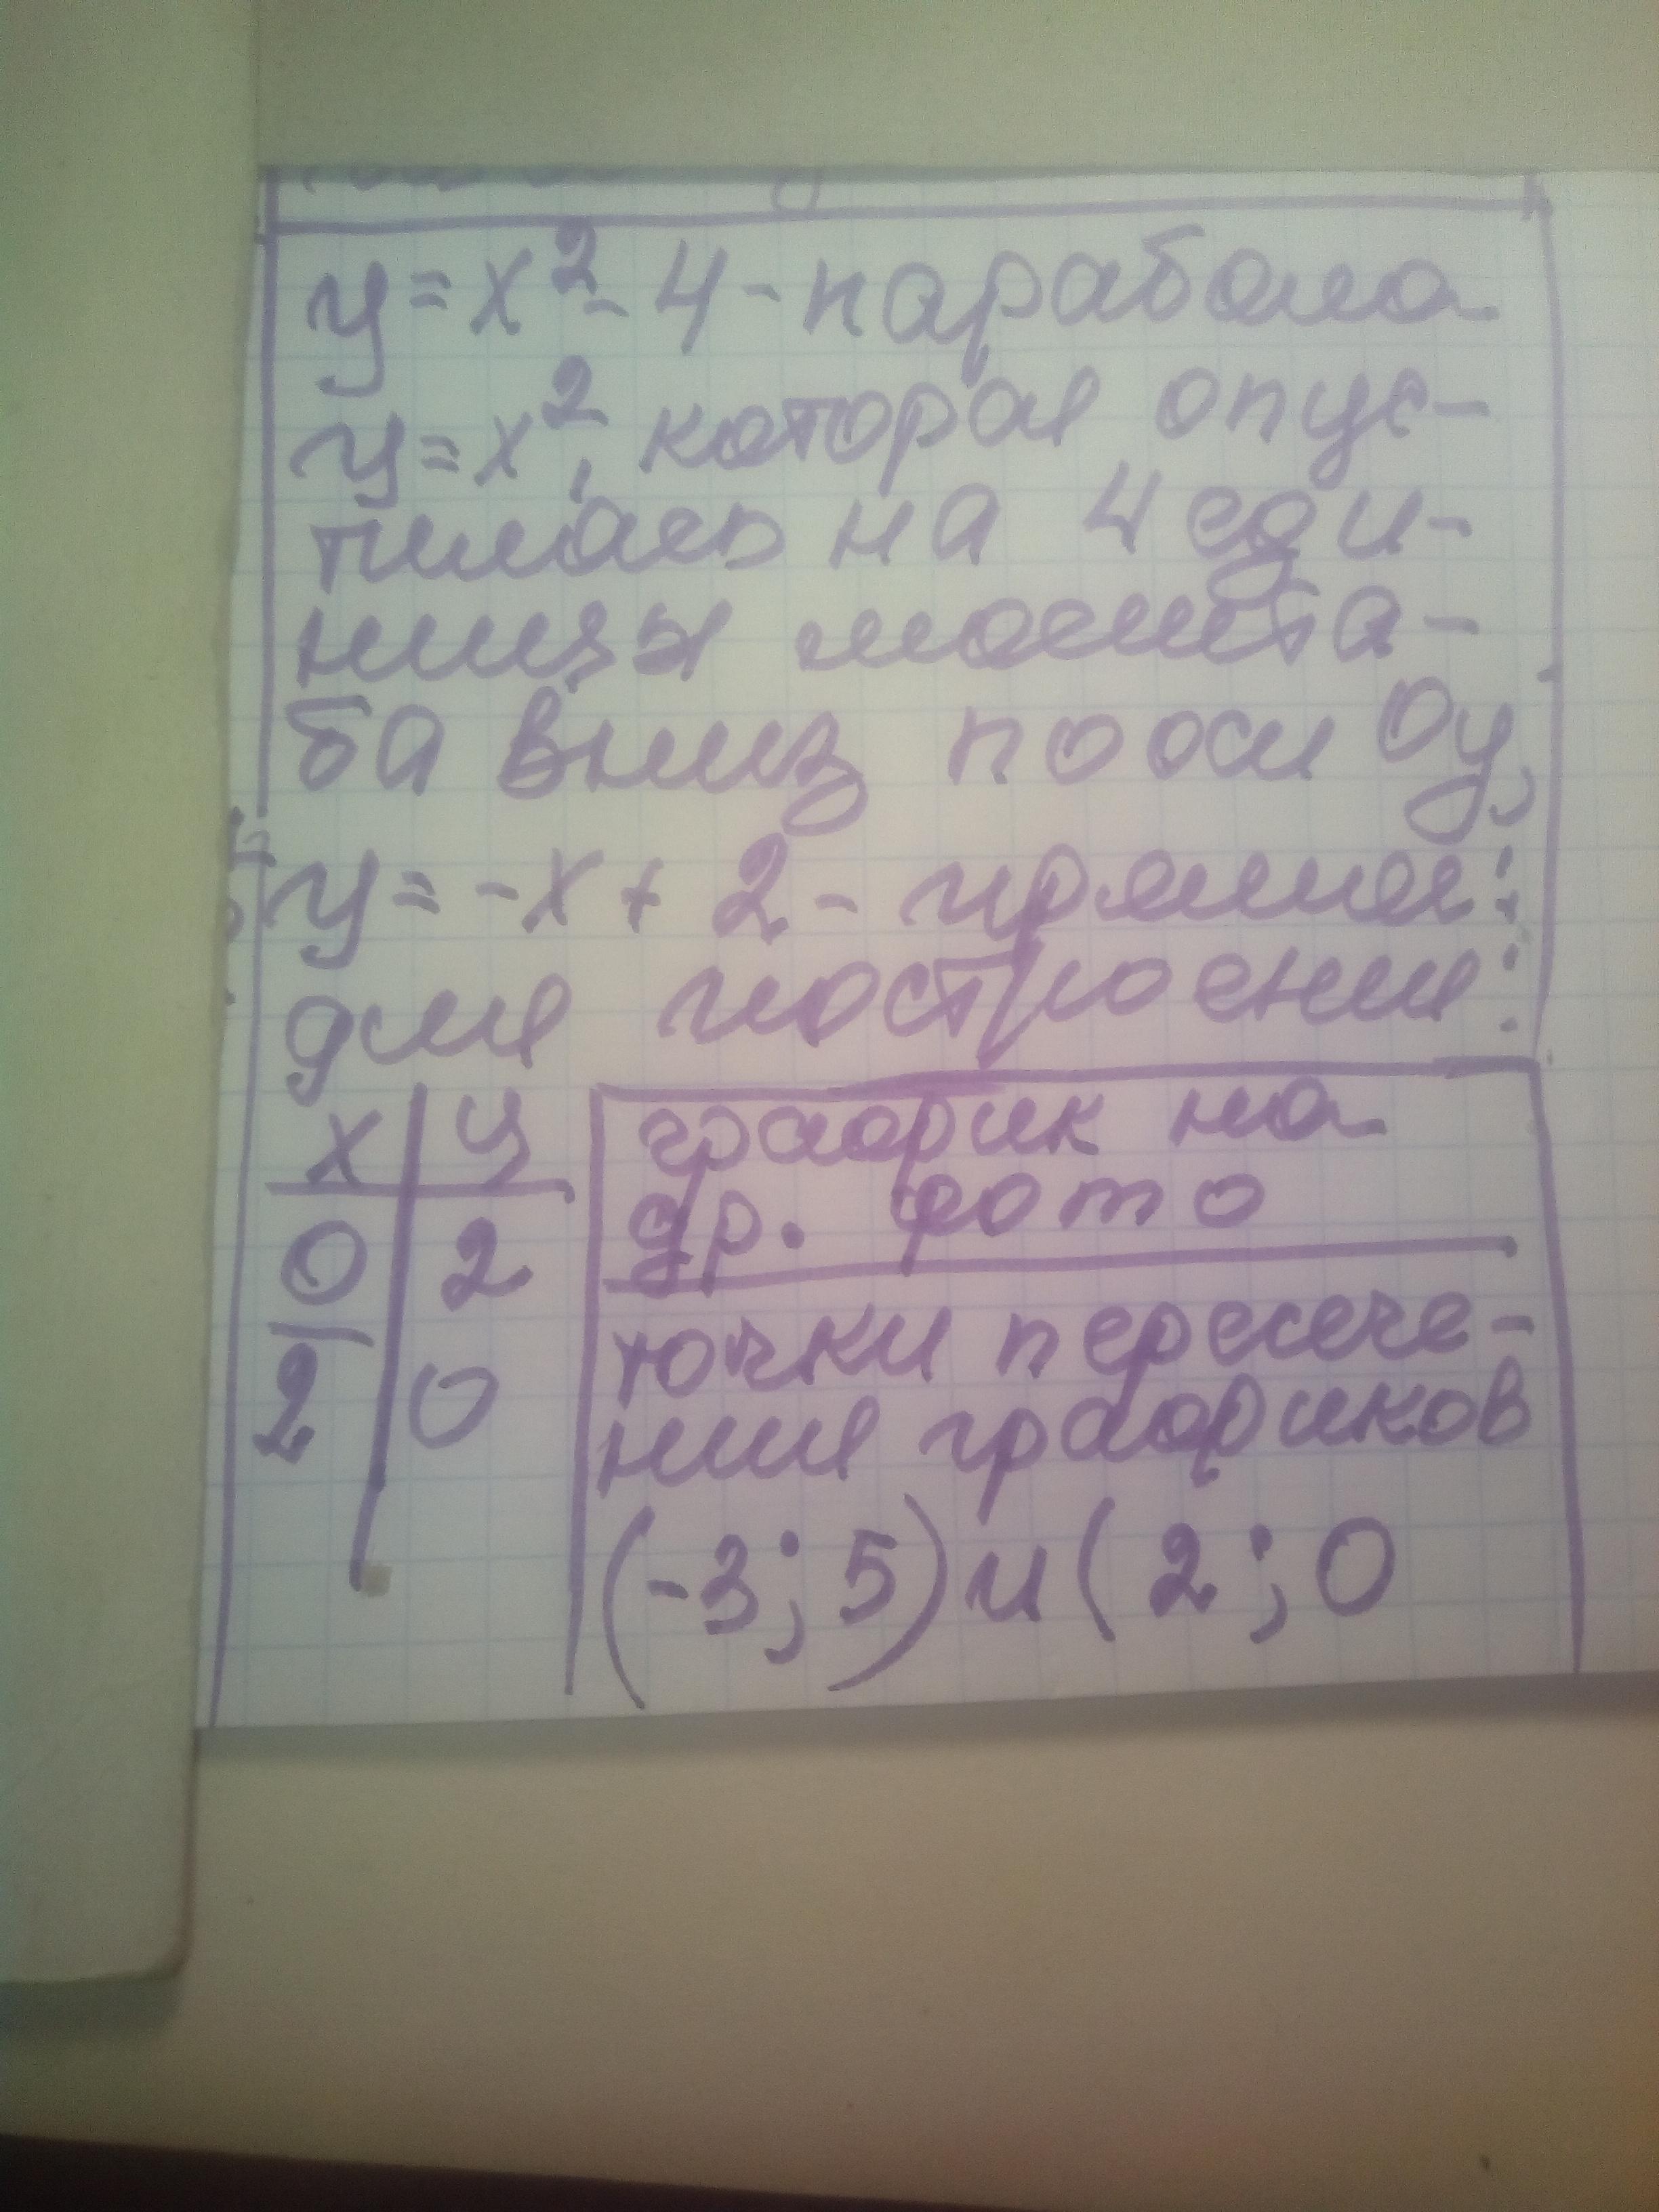 y=x²-4-парабола
y=x², которая опус-
тилась на 4 еди-
ницы масшта-
ба вниз по оси Оу,
y=-x+2-прямая:
для построени:
x y
0 2
2 0
график на
др. фото
точки пересече-
ния графиков
(-3;5) и (2;0